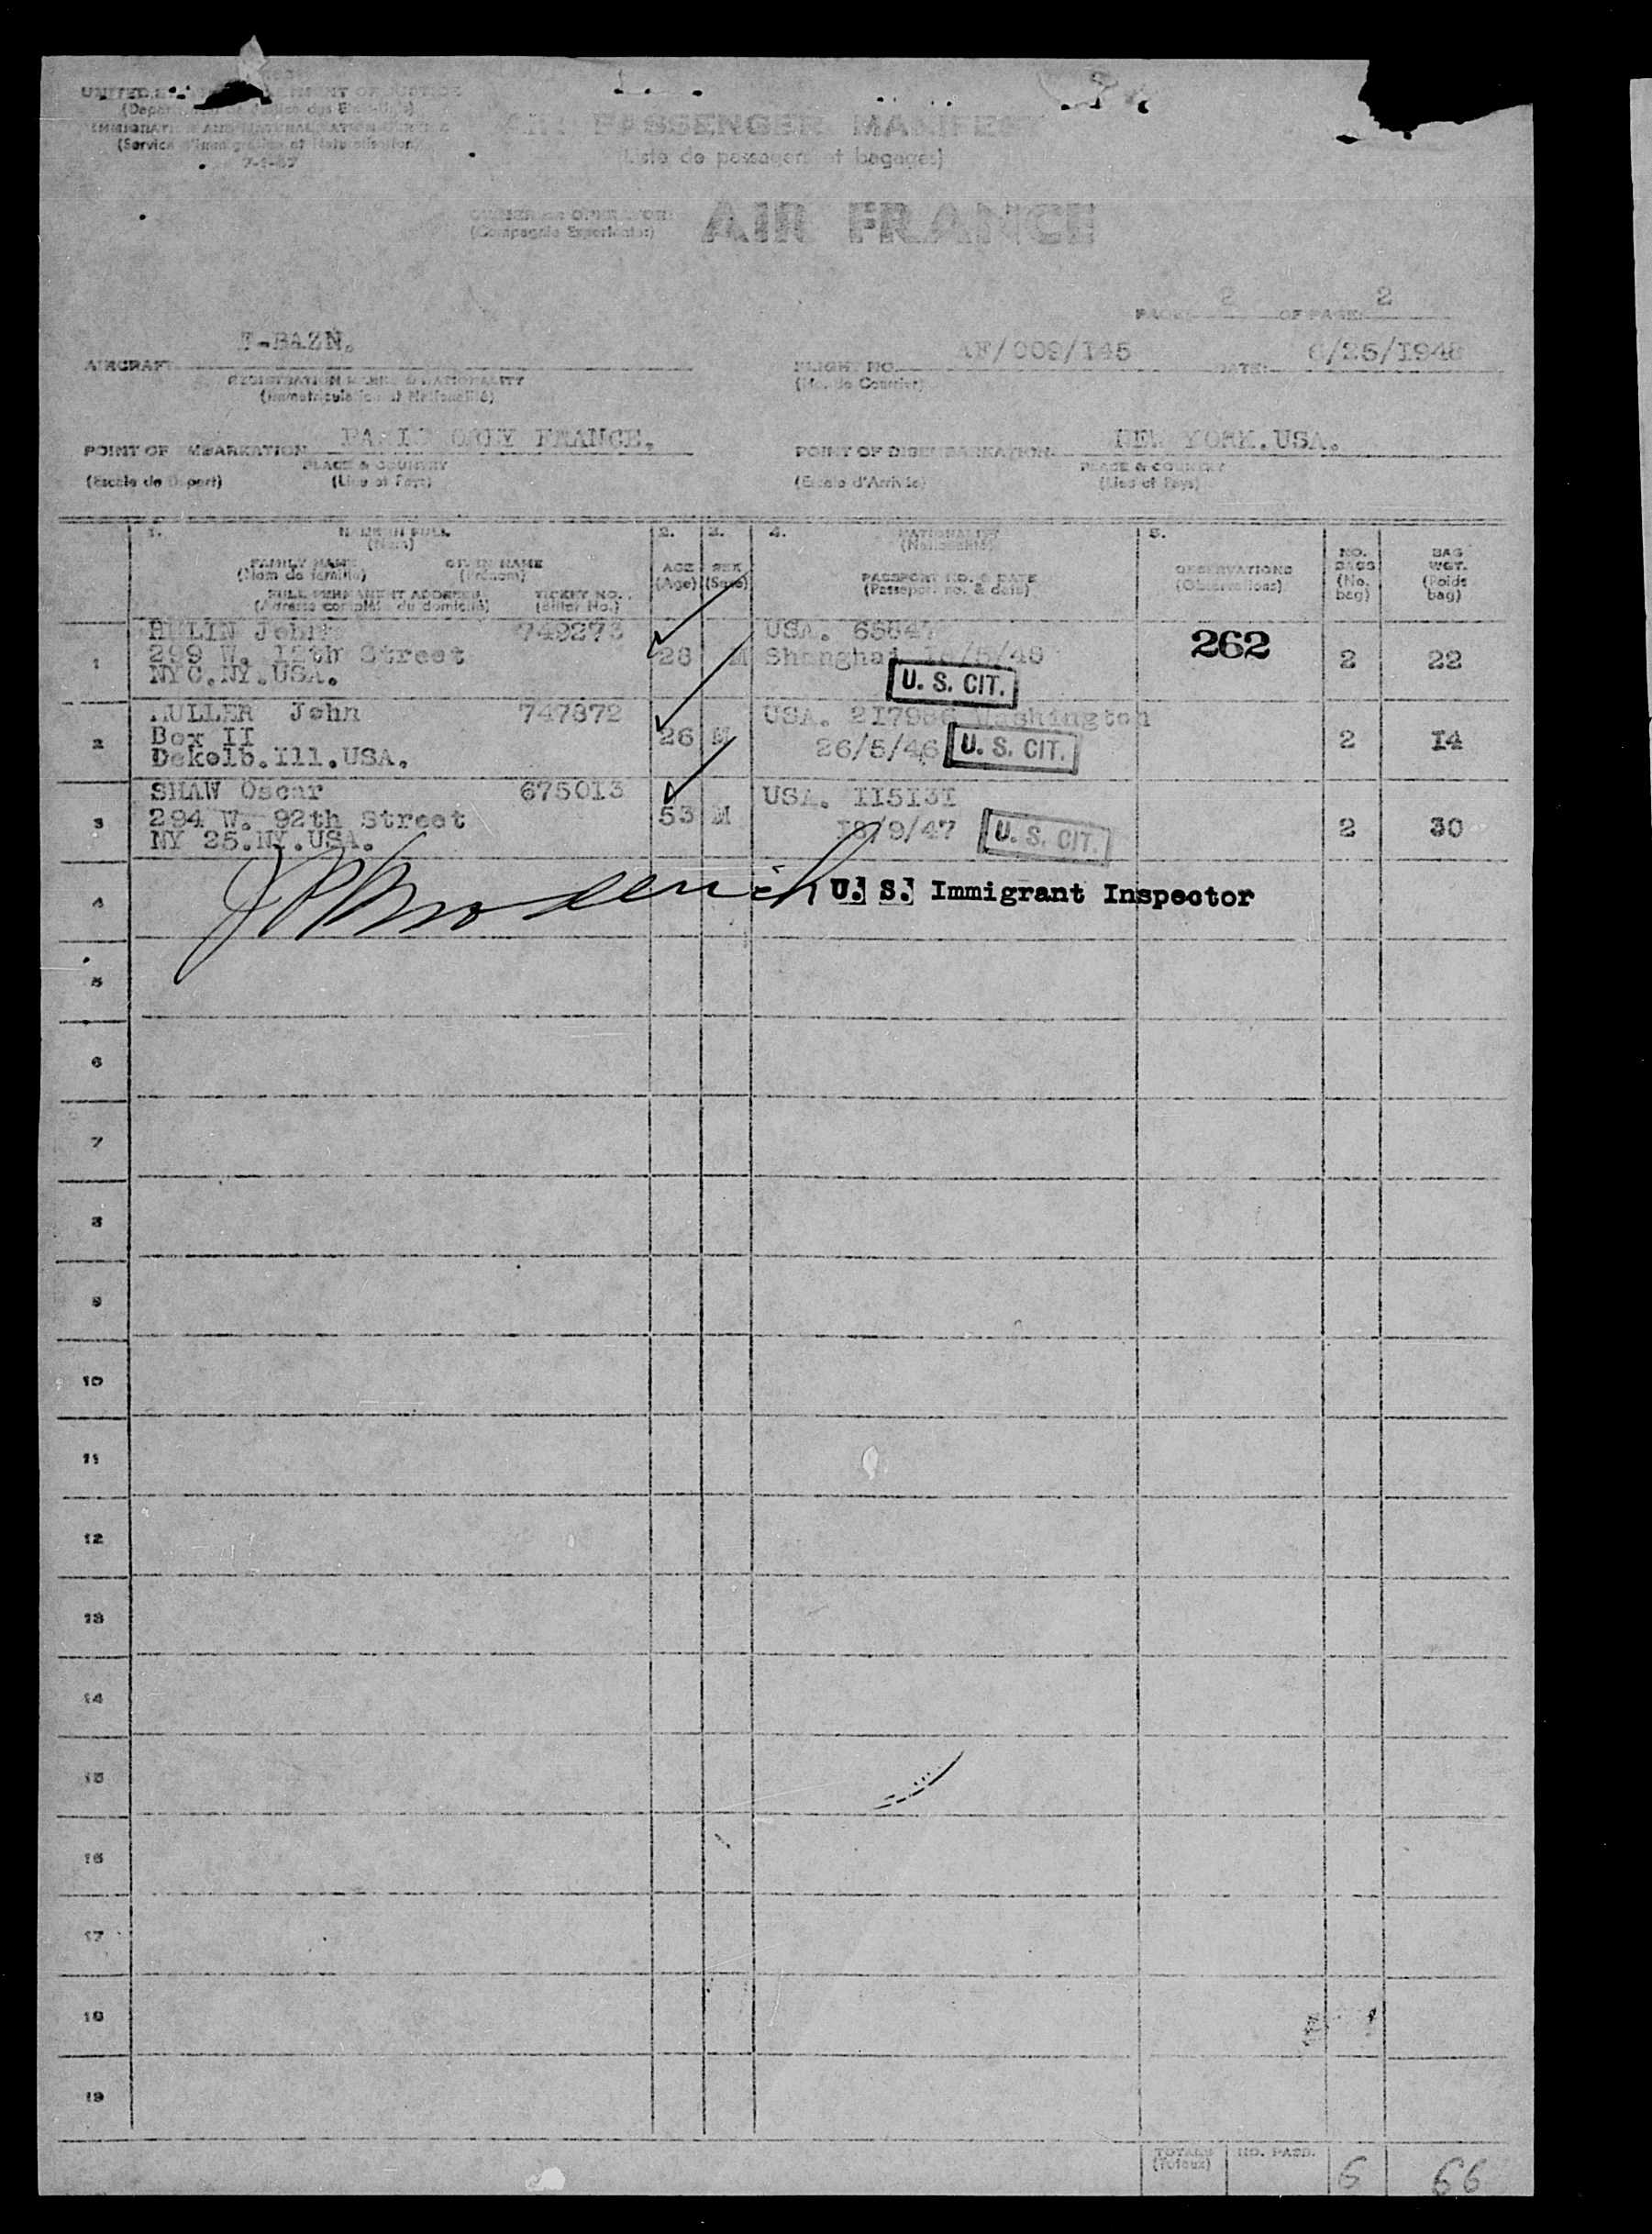 UNITED DEPARTMENT OF JUSTICE
(Service d'Immigration et Naturalisation)
7-1-47
AIR PASSENGER MANIFEST
(Liste de passagers et bagages)
OWNER or OPERATOR: AIR FRANCE
PAGE 2 OF PAGE 2
AIRCRAFT F-BAZN. FLIGHT NO. AF/009/I45 DATE: 6/25/I948
REGISTRATION MARKS & NATIONALITY
(Immatriculation et Nationalité)
POINT OF EMBARKATION PARIS ORLY FRANCE. POINT OF DISEMBARKATION NEW YORK.USA.
PLACE & COUNTRY PLACE & COUNTRY
(Escale de Départ) (Lieu et Pays) (Escale d'Arrivée) (Lieu et Pays)
1. NAME IN FULL 2. 3. 4. NATIONALITY 5.
(Nom) (Nationalité)
FAMILY NAME GIVEN NAME AGE SEX PASSPORT NO. & DATE OBSERVATIONS NO. BAGS BAG WGT.
(Nom de famille) (Prénom) (Age) (Sexe) (Passeport no. & date) (Observations) (No. bag) (Poids bag)
FULL PERMANENT ADDRESS TICKET NO.
(Adresse complète du domicile) (Billet No.)
John 749273 USA. 262
1 299 W. Street 28 M Shanghai 2 22
NYC.NY.USA. U. S. CIT.
MULLER John 747872 USA. Washington
2 Box II 26 M 26/5/46 U. S. CIT. 2 I4
Dekolb.Ill.USA.
SHAW Oscar 675013 USA. II5I3I
3 294 W. 92th Street 53 M I8/9/47 U. S. CIT. 2 30
NY 25.NY.USA.
4 U. S. Immigrant Inspector
5
6
7
8
9
10
11
12
13
14
15
16
17
18
19
TOTALS NO. PASS. 6 66
(Totaux)